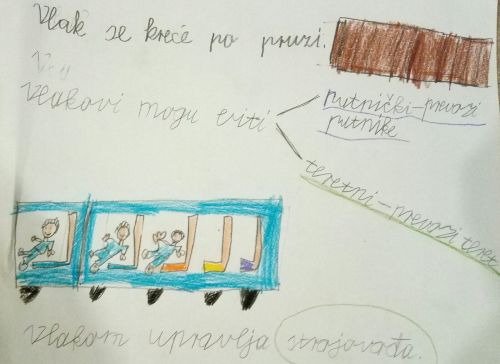 Vlak se kreće po pruzi.
Vlakovi mogu biti
putnički-prevozi
putnike
teretni-prevozi teret
Vlakom upravlja strojovođa.